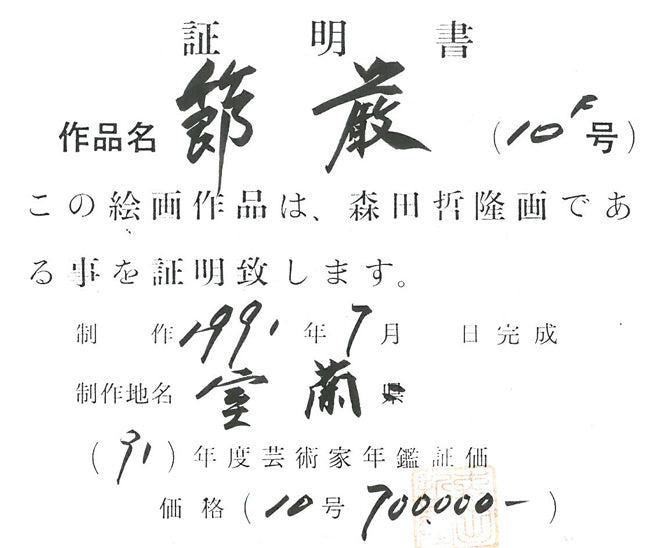 証明書
作品名 節 巌 (10F号)
この絵画作品は、森田哲隆画であ
る事を証明致します。
制 作 1991年 7月 日完成
制作地名 室蘭
(91)年度芸術家年鑑証価
価格(10号 700.000-)